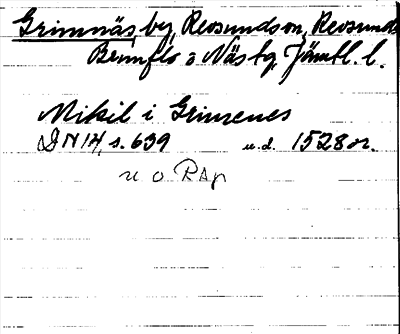 Grimnäs by, Revsunds sn, Revsunds
Brunflo o Näs tg, Jämtl. l.
Mikil i Grimenes
DN 14, s. 639 u.d. 1528 or.
n o RAp